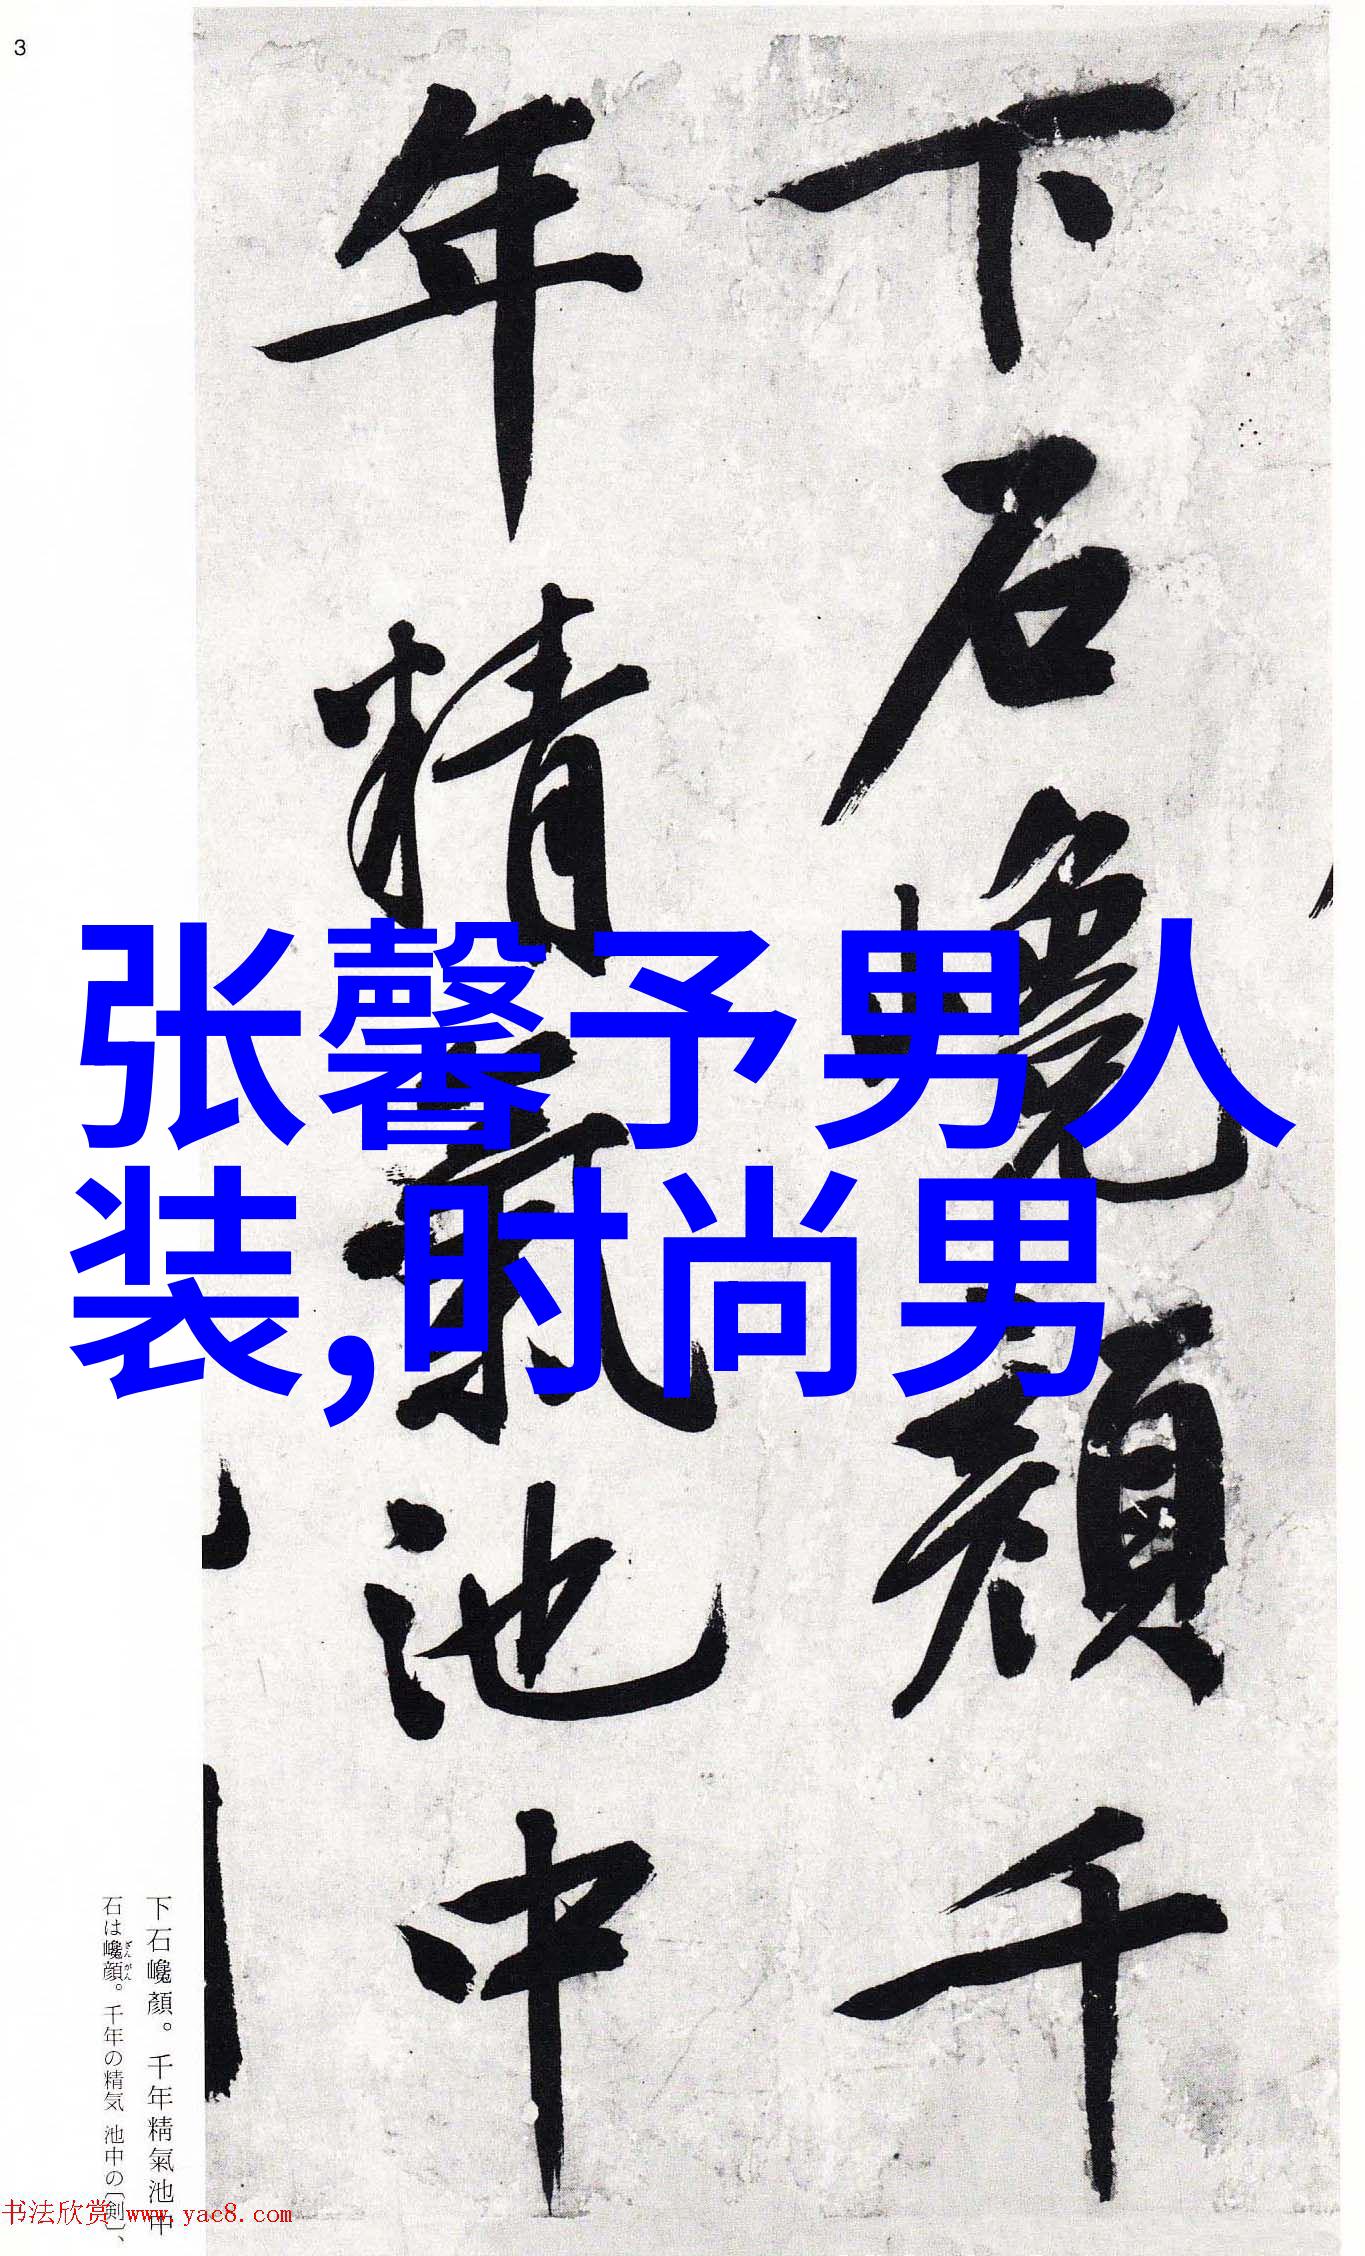 3
下石巉顏千
年精氣池中
张馨予男人
装,时尚男
下石巉顏。千年精氣池中
石は巉顔。千年の精気 池中の〔剣〕、
ざんがん
书法欣赏 www.yac8.com